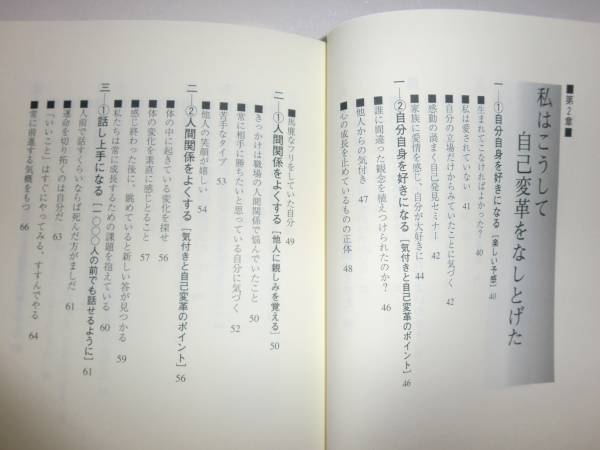 ■第2章■
私はこうして
自己変革をなしとげた
一―①自分自身を好きになる［楽しい予感］ 40
■生まれてこなければよかった？ 40
■私は愛されていない 41
■自分の立場だけからみていたことに気づく 42
■感動の渦まく自己発見セミナー 42
■家族に愛情を感じ、自分が大好きに 44
一―②自分自身を好きになる［気付きと自己変革のポイント］ 46
■誰に間違った観念を植えつけられたのか？ 46
■他人からの気付き 47
■心の成長を止めているものの正体 48
■馬鹿なフリをしていた自分 49
二―①人間関係をよくする［他人に親しみを覚える］ 50
■きっかけは職場の人間関係で悩んでいたこと 50
■常に相手に勝ちたいと思っている自分に気づく 52
■苦手なタイプ 53
■他人の笑顔が嬉しい 54
二―②人間関係をよくする［気付きと自己変革のポイント］ 56
■体の中に起きている変化を探せ 56
■体の変化を素直に感じとること 57
■感じ終わった後に、眺めていると新しい答が見つかる 59
■私たちは常に成長するための課題を抱えている 60
三―①話し上手になる［一〇〇〇人の前でも話せるように］ 61
■人前で話すくらいならば死んだ方がましだ 61
■運命を切り拓くのは自分だ 63
■「いいこと」はすぐにやってみる、すすんでやる 64
■常に前進する気概をもつ 66